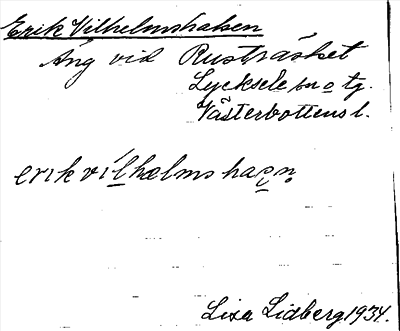 Erik Vilhelmshalsen
Äng vid Rusträsket
Lycksele sn o tg.
Västerbottens l.
erik vilhelms hasn
Lisa Lidberg 1934.